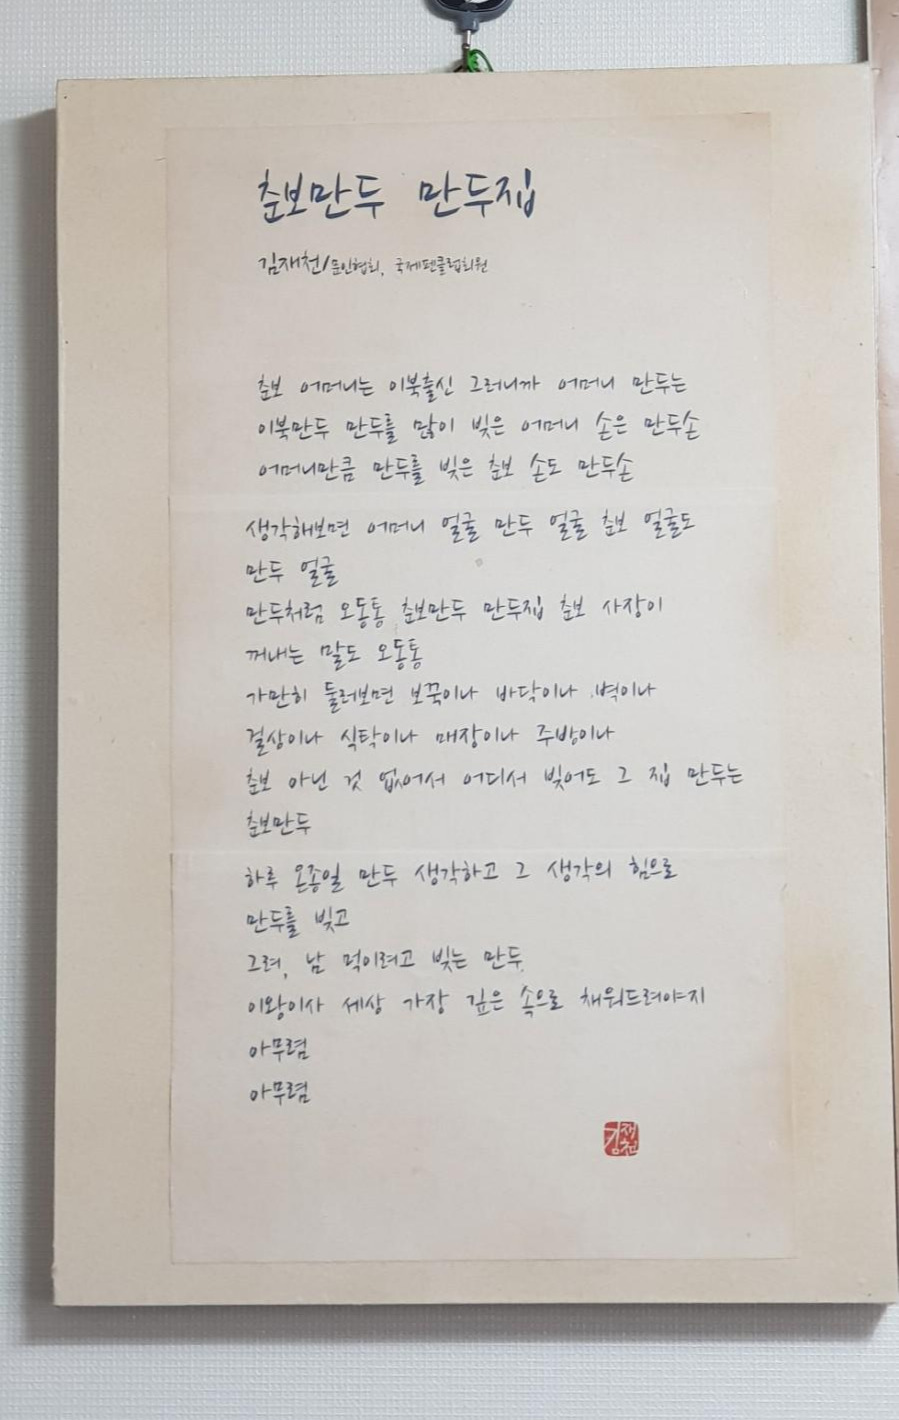 춘보만두 만두집
김재천/문인협회, 국제펜클럽회원
춘보 어머니는 이북출신 그러니까 어머니 만두는
이북만두 만두를 많이 빚은 어머니 손은 만두손
어머니만큼 만두를 빚은 춘보 손도 만두손
생각해보면 어머니 얼굴 만두 얼굴 춘보 얼굴도
만두 얼굴
만두처럼 오동통 춘보만두 만두집 춘보 사장이
꺼내는 말도 오동통
가만히 둘러보면 보꾹이나 바닥이나 벽이나
걸상이나 식탁이나 매장이나 주방이나
춘보 아닌 것 없어서 어디서 빚어도 그 집 만두는
춘보만두
하루 온종일 만두 생각하고 그 생각의 힘으로
만두를 빚고
그려, 남 먹이려고 빚는 만두
이왕이사 세상 가장 깊은 속으로 채워드려야지
아무렴
아무렴
김재천